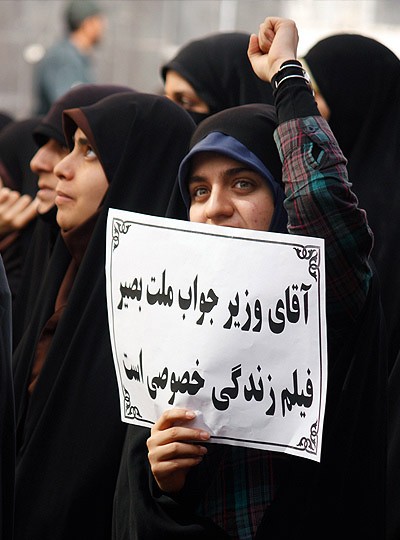 آقای وزیر جواب ملت بصیر
فیلم زندگی خصوصی است